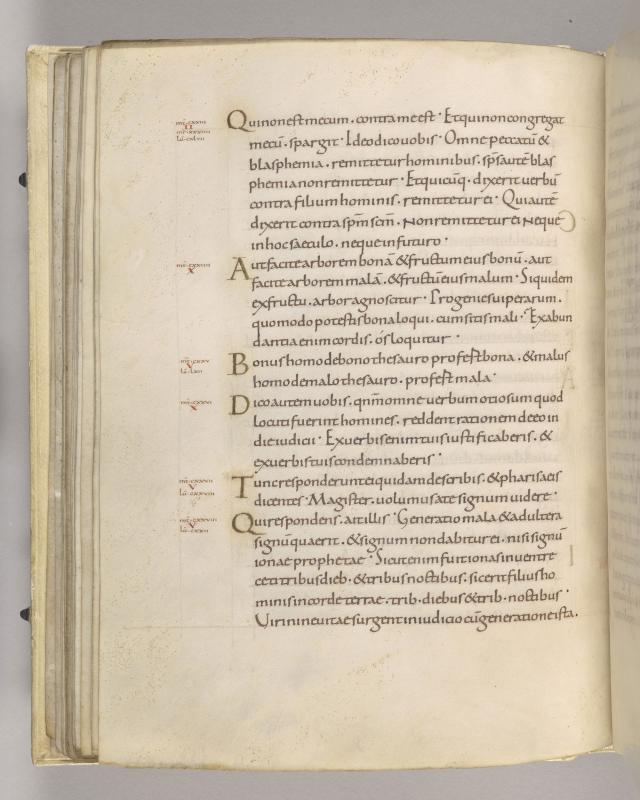 Qui non est mecum . contra me est · Et qui non congregat
mecū . spargit · Ideo dico uobis · Omne peccatū &
blasphemia . remittetur hominibus . sp̄s autē blas
phemia non remittetur · Et quicūq · dixerit uerbū
contra filium hominis . remittetur ei · Qui autē
dixerit contra sp̄m sc̄m . Non remittetur ei Neque
in hoc saeculo . neque in futuro ·
Aut facite arborem bonā & fructum eius bonū . aut
facite arborem malā . & fructū eius malum · Siquidem
ex fructu . arbor agnoscitur · Progenies uiperarum .
quomodo potestis bona loqui . cum sitis mali · Ex abun
dantia enim cordis . ós loquitur ·
X
Bonus homo de bono thesauro profest bona . & malus
homo de malo thesauro . profest mala ·
V
Dico autem uobis . qnm̄ omne uerbum otiosum quod
locuti fuerint homines . reddent rationem de eo in
die iudicii · Ex uerbis enim tuis iustificaberis . &
ex uerbis tuis condemnaberis ·
X
Tunc responderunt ei quidam de scribis . & pharisaeis
dicentes · Magister . uolumus a te signum uidere ·
V
Qui respondens . ait illis · Generatio mala & adultera
signū quaerit . & signum non dabitur ei . nisi signū
ionae prophetae · Sicut enim fuit ionas in uentre
ceti tribus dieb . & tribus noctibus . sic erit filius ho
minis in corde terrae . trib . diebus & trib . noctibus ·
Viri nineuitae surgent in iudicio cū generatione ista .
V